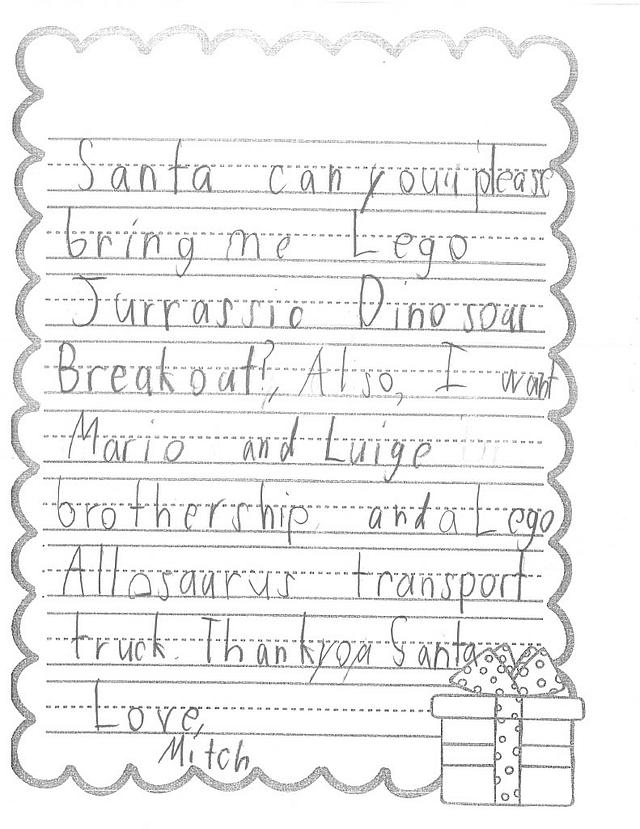 Santa can you please
bring me Lego
Jurrassic Dinosour
Breakout? Also, I want
Mario and Luige
brothership and a Lego
Allosaurus transport
truck. Thank you Santa
Love,
Mitch